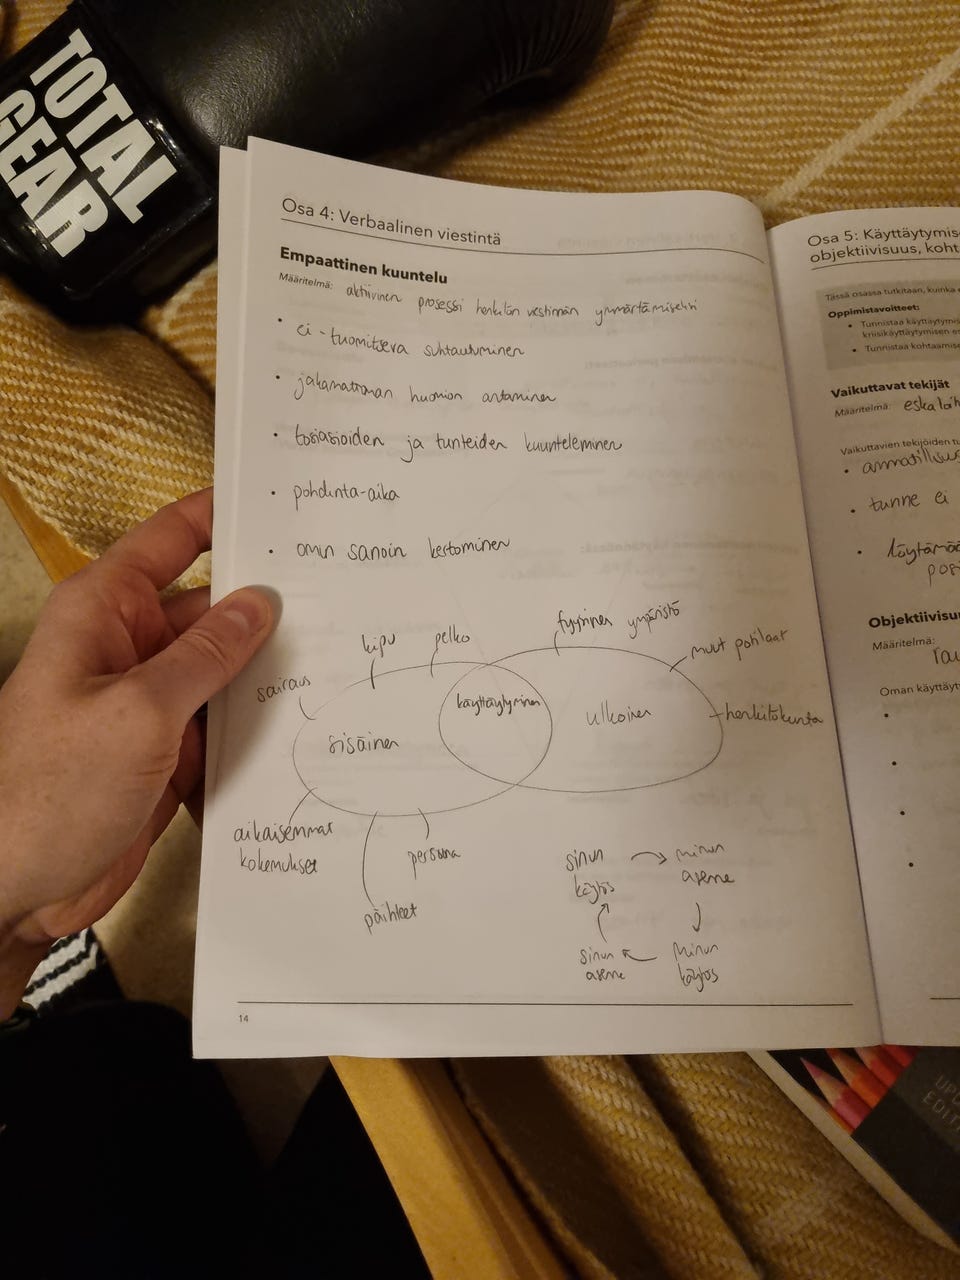 TOTAL
GEAR
Osa 4: Verbaalinen viestintä
Empaattinen kuuntelu
Määritelmä: aktiivinen prosessi henkilön viestinnän ymmärtämiseksi
• ei-tuomitseva suhtautuminen
• jakamattoman huomion antaminen
• tosiasioiden ja tunteiden kuunteleminen
• pohdinta-aika
• omin sanoin kertominen
kipu
pelko
sairaus
sisäinen
käyttäytyminen
fyysinen ympäristö
muut potilaat
ulkoinen
henkilökunta
aikaisemmat
kokemukset
persoona
päihteet
sinun
käytös
minun
asenne
sinun
asenne
minun
käytös
14
Osa 5: Käyttäytymise
objektiivisuus, koht
Tässä osassa tutkitaan, kuinka
Oppimistavoitteet:
• Tunnistaa käyttäytymis
kriisikäyttäytymisen es
• Tunnistaa kohtaamise
Vaikuttavat tekijät
Määritelmä: eskaloih
Vaikuttavien tekijöiden tu
• ammatillisuus
• tunne ei
• löytämää
posi
Objektiivisu
Määritelmä:
rau
Oman käyttäyt
UPD
EDIT